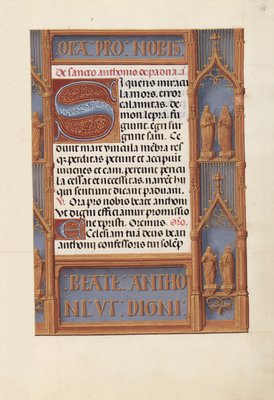 ORA: PRO: NOBIS:
De sancto anthonio de padua. a.
Si queris miracu
la mors, error
calamitas, de
mon lepra, fu
giunt, egri sur
gunt sani. Ce
dunt mare vincula mēbra res
q3 perditas petunt et accipiūt
iuuenes et cani. pereunt pericu
la cessat et necessitas, narrēt hii
qui sentiunt dicant paduani.
V. Ora pro nobis beate anthoni
Ut digni efficiamur promissio
ne xpristi. Oremus. Orō.
Ecclesiam tuā deus beati
anthonij confessoris tui solēp
:BEATE: ANTHO
NI: VT: DIGNI: